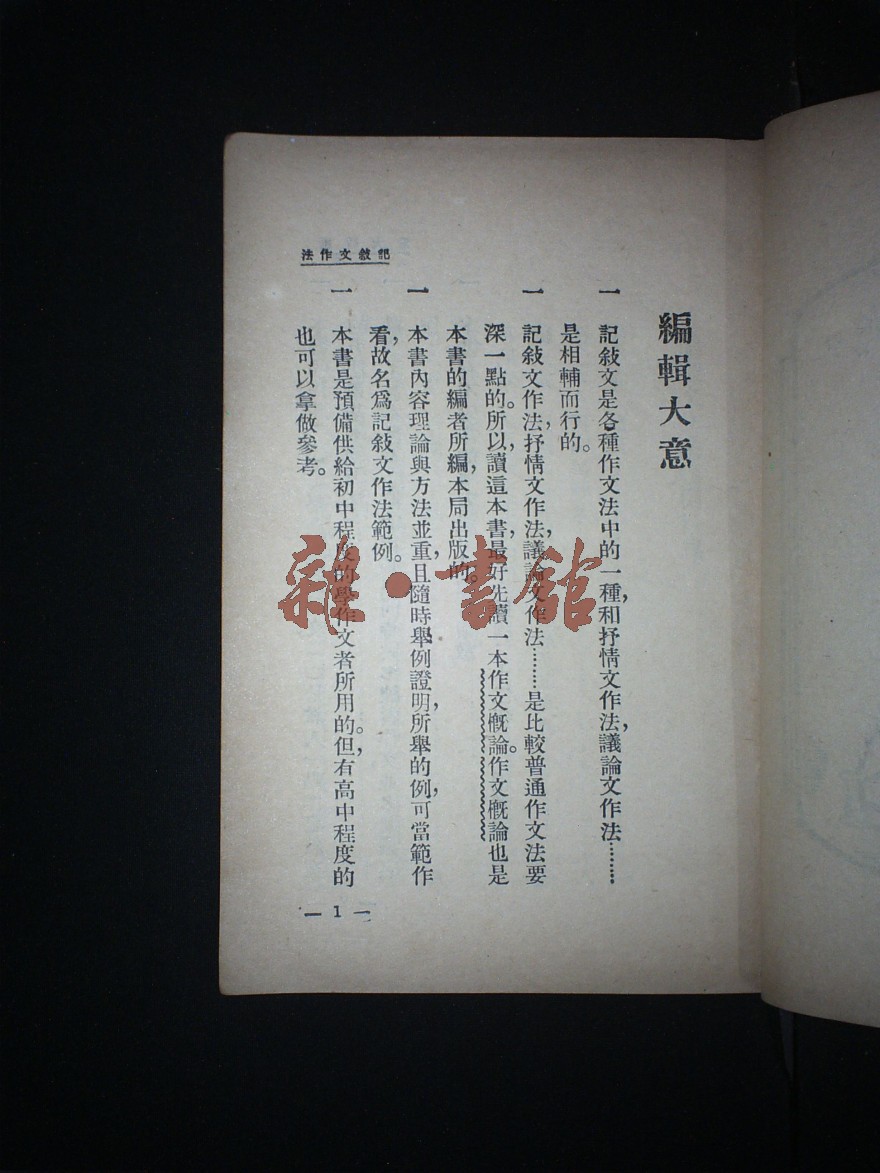 記敘文作法
編輯大意
一 記敍文是各種作文法中的一種,和抒情文作法,議論文作法………
是相輔而行的。
一 記敍文作法,抒情文作法,議論文作法………是比較普通作文法要
深一點的。所以,讀這本書,最好先讀一本作文概論。作文概論也是
本書的編者所編,本局出版的。
一 本書內容理論與方法並重,且隨時舉例證明,所舉的例,可當範作
看,故名爲記敍文作法範例。
一 本書是預備供給初中程度的學作文者所用的。但,有高中程度的
也可以拿做參考。
— 1 —
雜·書館